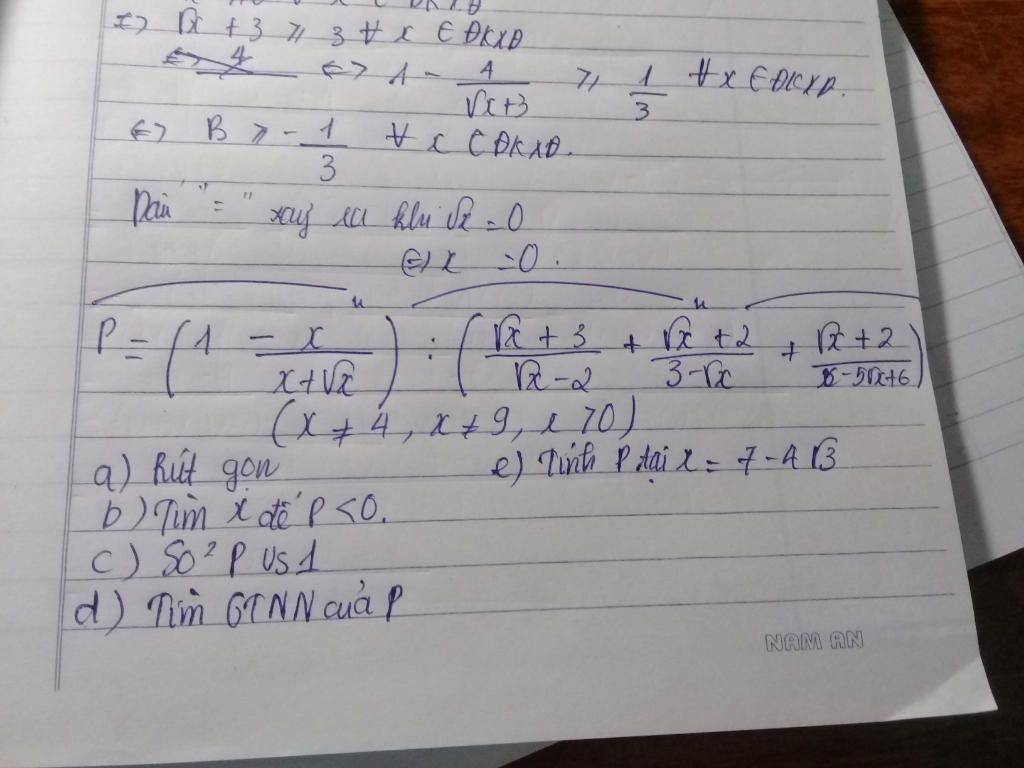 =) √x + 3 ≥ 3 ∀ x ∈ ĐKXĐ
<=> 1 - 4/(√x+3) ≥ 1/3 ∀x ∈ ĐKXĐ.
<=> B ≥ -1/3 ∀ x ∈ ĐKXĐ.
Dấu "=" xảy ra khi √x = 0
<=> x = 0.
P = (1 - x/(x+√x)) : ((√x + 3)/(√x - 2) + (√x + 2)/(3 - √x) + (√x + 2)/(x - 5√x + 6))
(x ≠ 4, x ≠ 9, x > 0)
a) Rút gọn e) Tính P tại x = 7 - 4√3
b) Tìm x để P < 0.
c) So² P vs 1
d) Tìm GTNN của P
NAM AN